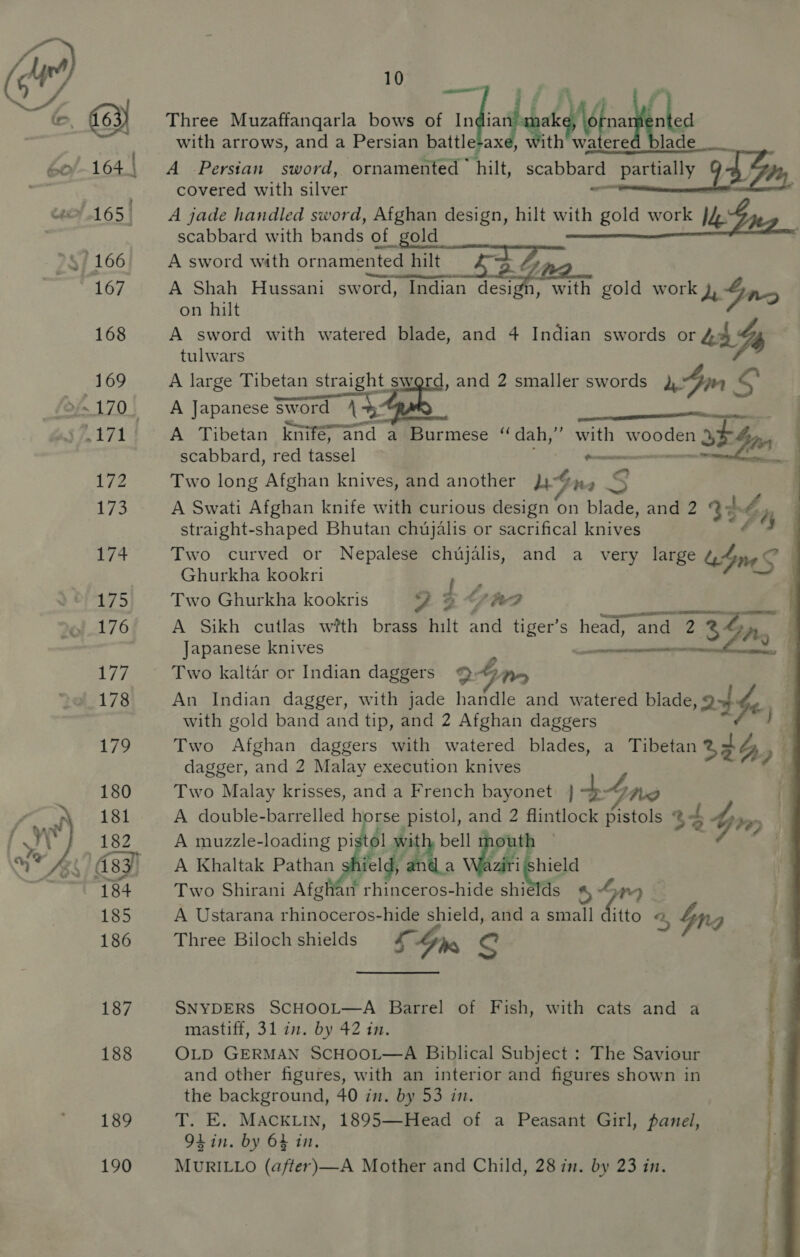 10
163 Three Muzaffanqarla bows of Indian make, ornamented
with arrows, and a Persian battle-axe, with watered blade
164 A Persian sword, ornamented hilt, scabbard partially
covered with silver
165 A jade handled sword, Afghan design, hilt with gold work
scabbard with bands of gold
166 A sword with ornamented hilt
167 A Shah Hussani sword, Indian design, with gold work
on hilt
168 A sword with watered blade, and 4 Indian swords or
tulwars
169 A large Tibetan straight sword, and 2 smaller swords
170 A Japanese sword
171 A Tibetan knife, and a Burmese “dah,” with wooden
scabbard, red tassel
172 Two long Afghan knives, and another
173 A Swati Afghan knife with curious design on blade, and 2
straight-shaped Bhutan chújális or sacrifical knives
174 Two curved or Nepalese chújális, and a very large
Ghurkha kookri
175 Two Ghurkha kookris
176 A Sikh cutlas with brass hilt and tiger's head, and 2
Japanese knives
177 Two kaltár or Indian daggers
178 An Indian dagger, with jade handle and watered blade,
with gold band and tip, and 2 Afghan daggers
179 Two Afghan daggers with watered blades, a Tibetan
dagger, and 2 Malay execution knives
180 Two Malay krisses, and a French bayonet
181 A double-barrelled horse pistol, and 2 flintlock pistols
182 A muzzle-loading pistol with bell mouth
183 A Khaltak Pathan shield, and a Waziri shield
184 Two Shirani Afghan rhinceros-hide shields
185 A Ustarana rhinoceros-hide shield, and a small ditto
186 Three Biloch shields
187 SNYDERS SCHOOL—A Barrel of Fish, with cats and a
mastiff, 31 in. by 42 in.
188 OLD GERMAN SCHOOL—A Biblical Subject : The Saviour
and other figures, with an interior and figures shown in
the background, 40 in. by 53 in.
189 T. E. MACKLIN, 1895—Head of a Peasant Girl, panel,
9½ in. by 6½ in.
190 MURILLO (after)—A Mother and Child, 28 in. by 23 in.